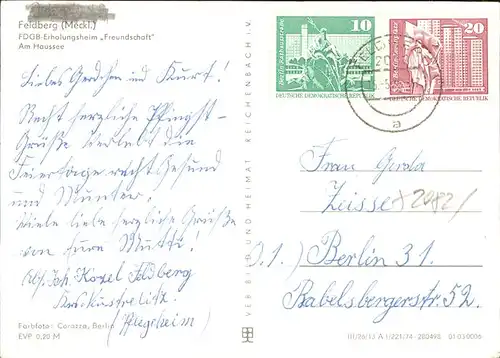 Feldberg (Meckl.)
FDGB-Erholungsheim „Freundschaft"
Am Haussee
Liebes Gerdchen und Kurt!
Recht herzliche Pfingst-
Grüße verlebt die
Feiertage recht Gesund
und Munter.
Viele liebe herzliche Grüße
von Eurer Mutti!
Abs. Joh. Kozel Feldberg
Krs. Neustrelitz
(Pflegeheim)
Farbfoto: Corazza, Berlin
EVP 0,20 M
VEB BILD UND HEIMAT REICHENBACH I. V.
10
DEUTSCHE DEMOKRATISCHE REPUBLIK
20
DEUTSCHE DEMOKRATISCHE REPUBLIK
a
Frau Gerda
Zeisse
(D. 1.) Berlin 31.
Babelsbergerstr. 52.
III/26/13 A 1/221/74 280498 01 03 0006